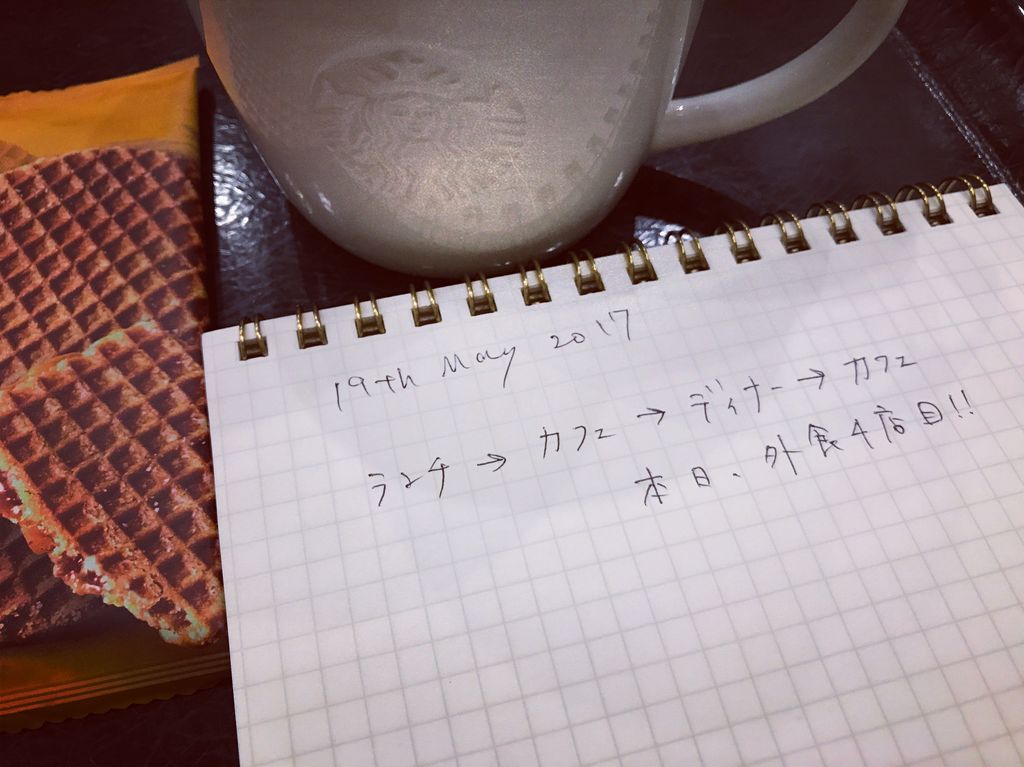 19th May 2017
ランチ → カフェ → ディナー → カフェ
本日、外食4店目!!